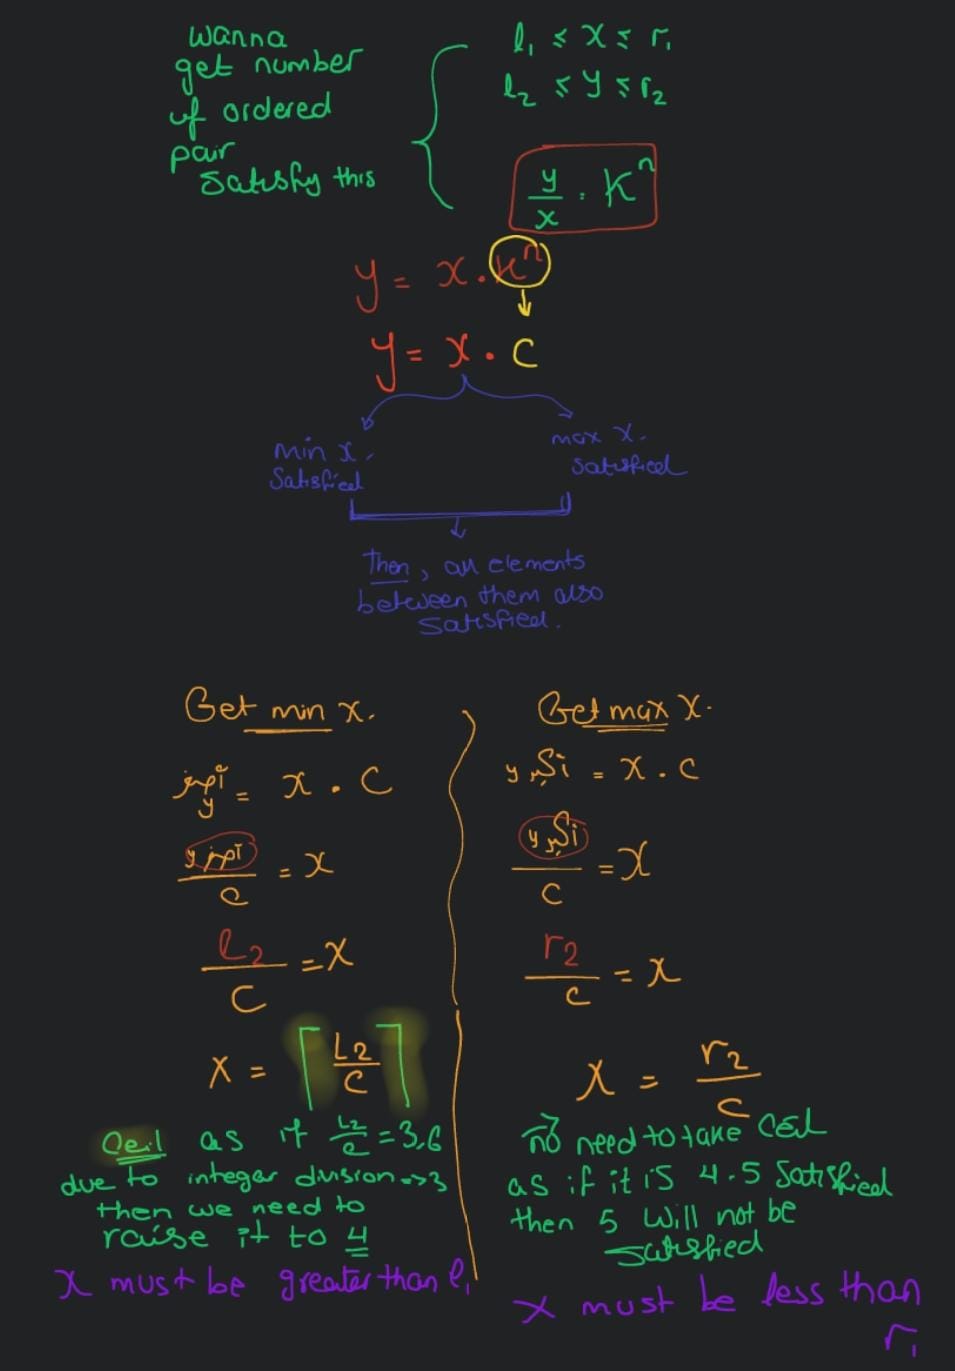 wanna
get number
of ordered
pair
satisfy this
l₁ ≤ x ≤ r₁
l₂ ≤ y ≤ r₂
y/x = Kⁿ
y = x . kⁿ
y = x . c
min x.
Satisfied
max x.
satisfied
Then, all elements
between them also
satisfied.
Get min x.
y = x . C
/ C = x
l₂ / C = x
x = ⌈L₂ / C⌉
Ceil as if L₂/c = 3,6
due to integer division => 3
then we need to
raise it to 4
x must be greater than l₁
Get max x.
y = x . C
/ C = x
r₂ / C = x
x = r₂ / C
no need to take ceil
as if it is 4.5 satisfied
then 5 will not be
satisfied
x must be less than
r₁